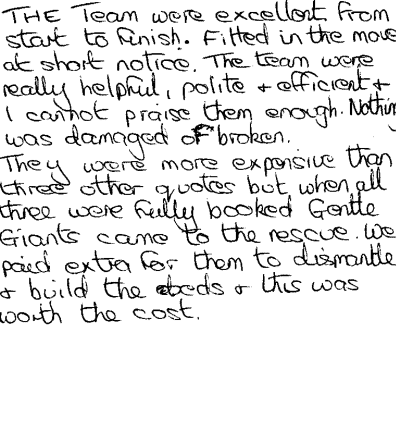 THE Team were excellent from
start to finish. Fitted in the move
at short notice. The team were
really helpful, polite + efficient +
I cannot praise them enough. Nothin
was damaged of broken.
They were more expensive than
three other quotes but when all
three were fully booked Gentle
Giants came to the rescue. We
paid extra for them to dismantle
+ build the beds + this was
worth the cost.